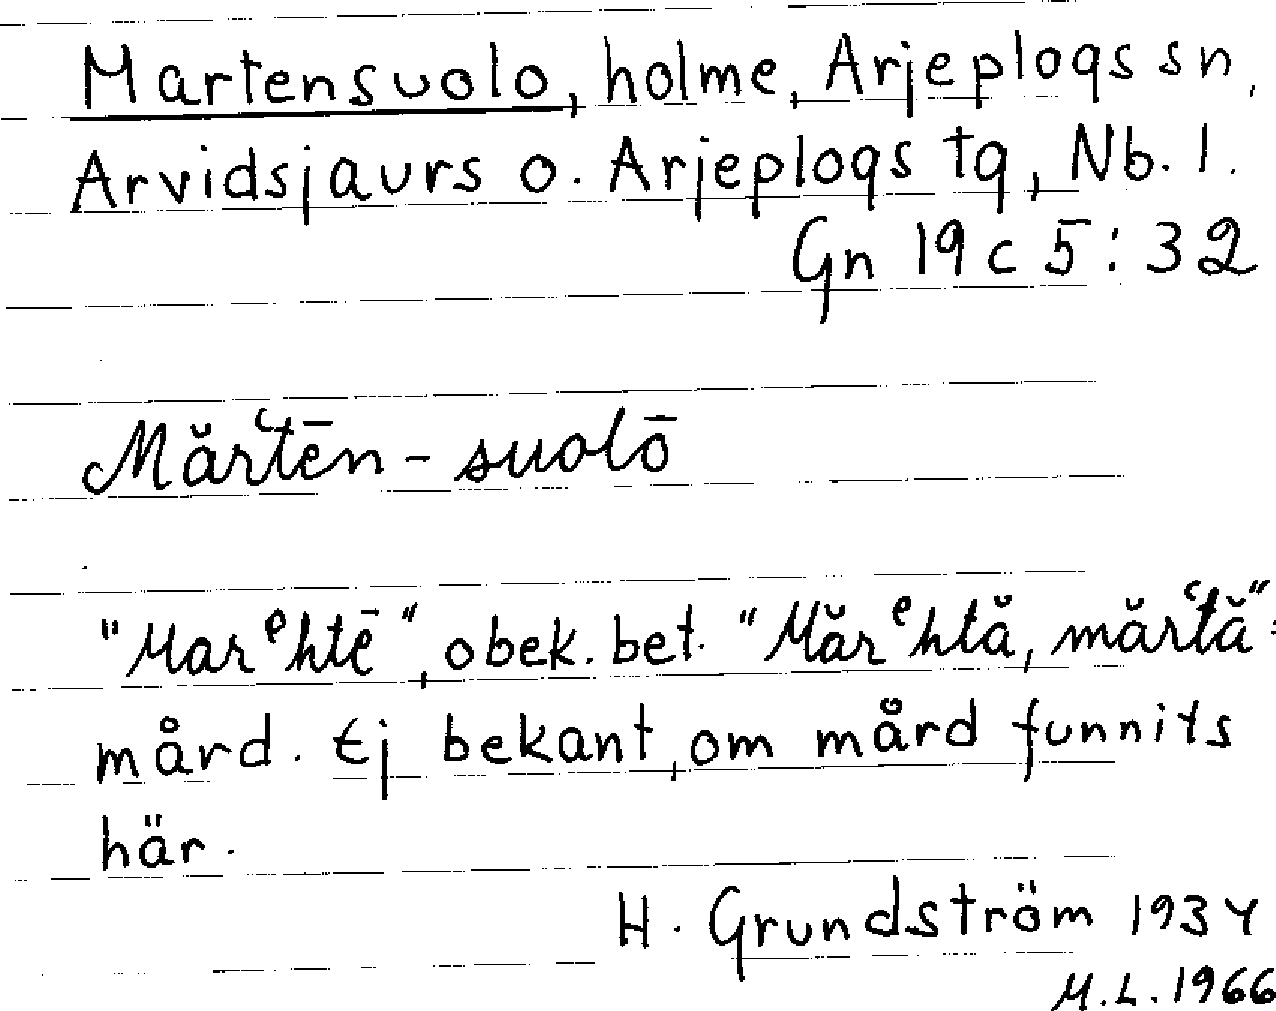 Martensuolo, holme, Arjeplogs sn,
Arvidsjaurs o. Arjeplogs tg, Nb. l.
Gn 19 c 5:32
Mărʿtēn-suolō
"Marᵉhtē", obek. bet. "Mărᵉhtă, mărʿtă":
mård. Ej bekant, om mård funnits
här.
H. Grundström 1934
M.L. 1966